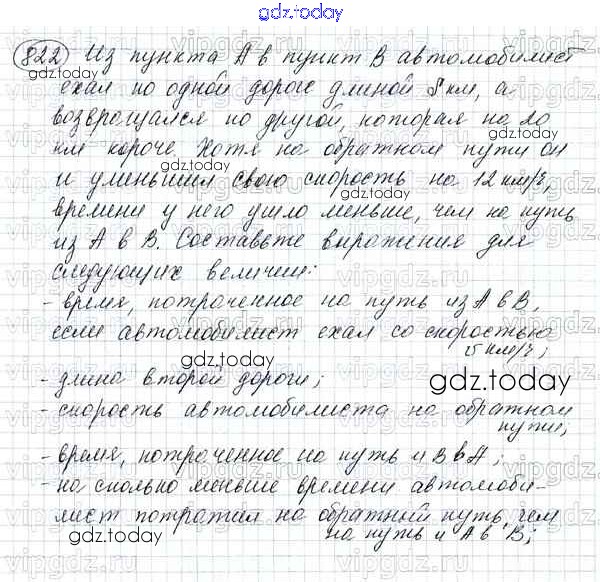 gdz.today
822 Из пункта А в пункт В автомобилист
gdz.today
ехал по одной дороге длиной S км, а
возвращался по другой, которая на 20
км короче. Хотя на обратном пути он
gdz.today
и уменьшил свою скорость на 12 км/ч,
времени у него ушло меньше, чем на путь
из А в В. Составьте выражения для
следующих величин:
- время, потраченное на путь из А в В,
если автомобилист ехал со скоростью
gdz.today
v км/ч;
- длина второй дороги;
gdz.today
- скорость автомобилиста на обратном
пути;
- время, потраченное на путь и В в А;
- на сколько меньше времени автомоби-
лист потратил на обратный путь, чем
gdz.today
на путь и А в В;
vipgdz.ru